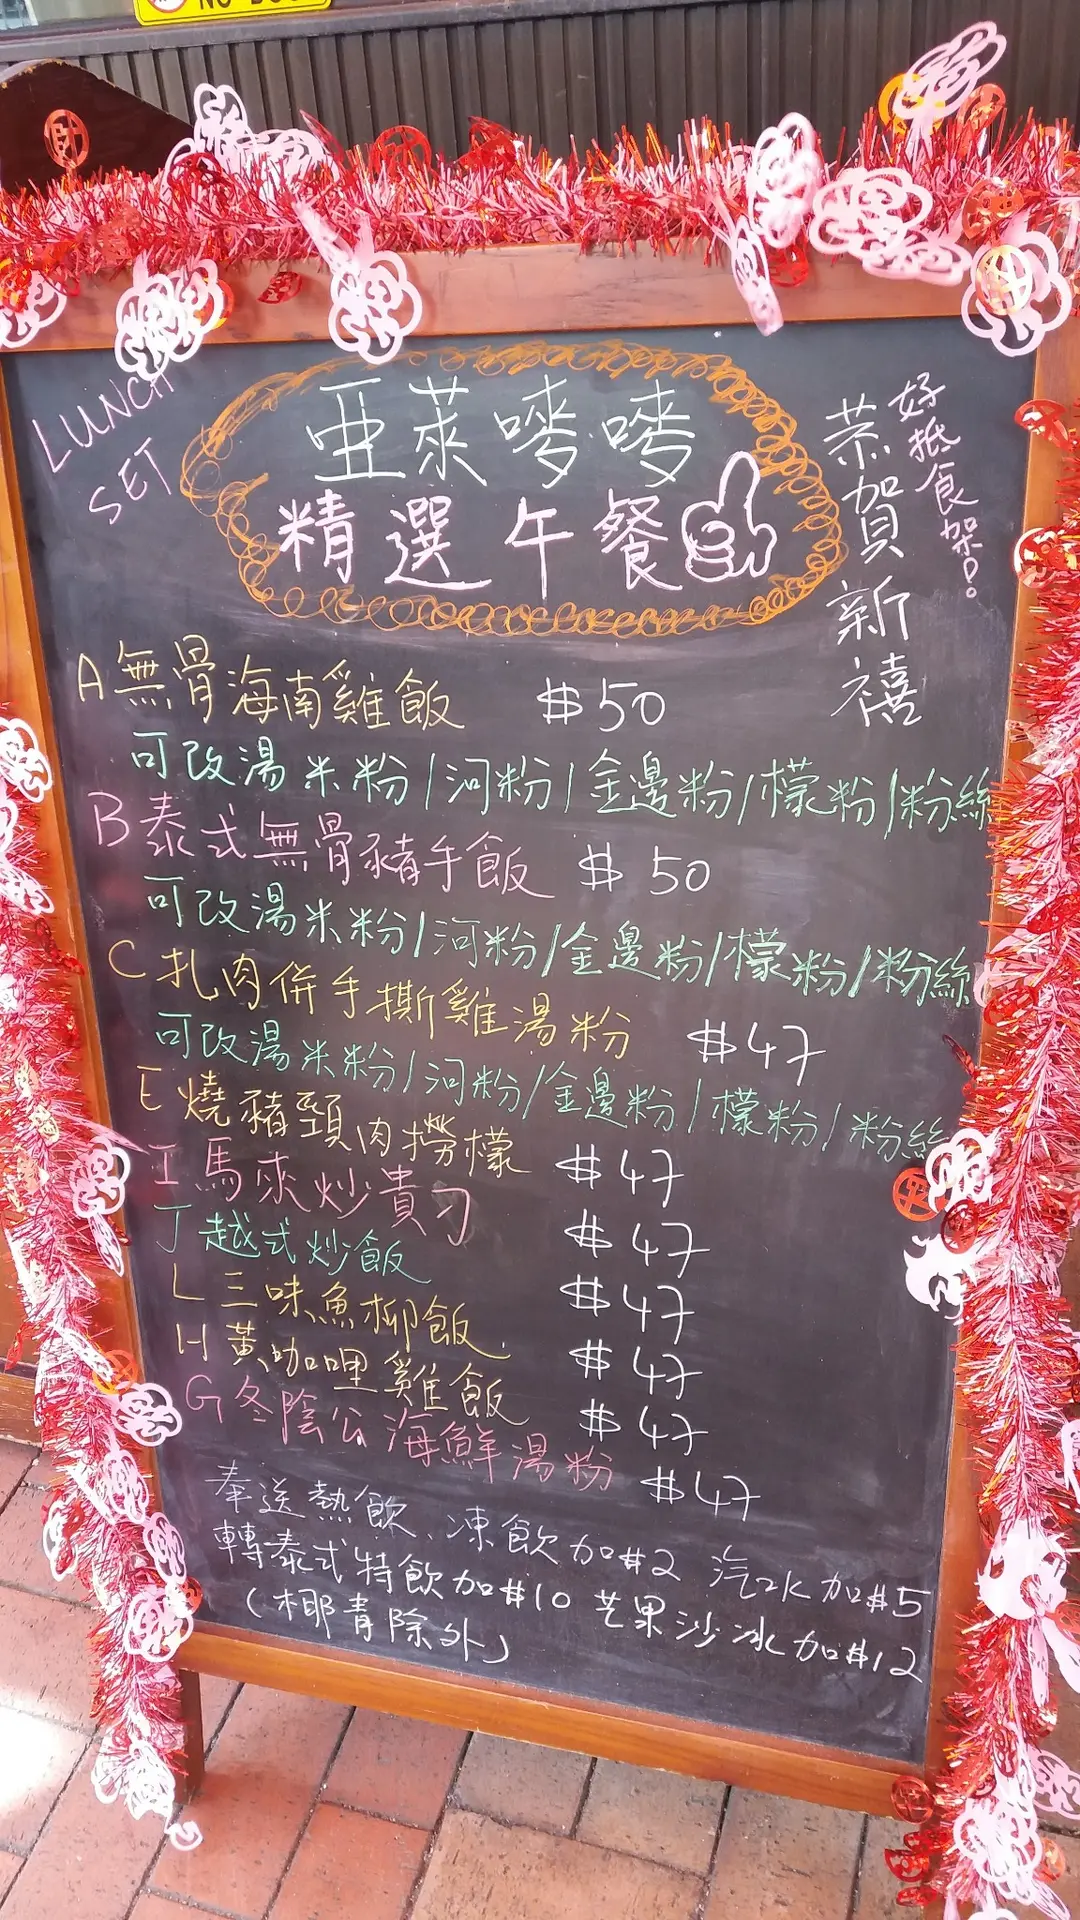 LUNCH
SET
亞萊嘜嘜
精選午餐
恭賀新禧
好抵食架!
A 無骨海南雞飯 $50
可改湯米粉/河粉/金邊粉/檬粉/粉絲
B 泰式無骨豬手飯 $50
可改湯米粉/河粉/金邊粉/檬粉/粉絲
C 扎肉併手撕雞湯粉 $47
可改湯米粉/河粉/金邊粉/檬粉/粉絲
E 燒豬頸肉撈檬 $47
I 馬來炒貴刁 $47
J 越式炒飯 $47
L 三味魚柳飯 $47
H 黃咖哩雞飯 $47
G 冬陰公海鮮湯粉 $47
奉送熱飲、凍飲加$2 汽水加$5
轉泰式特飲加$10 芒果沙冰加$12
(椰青除外)